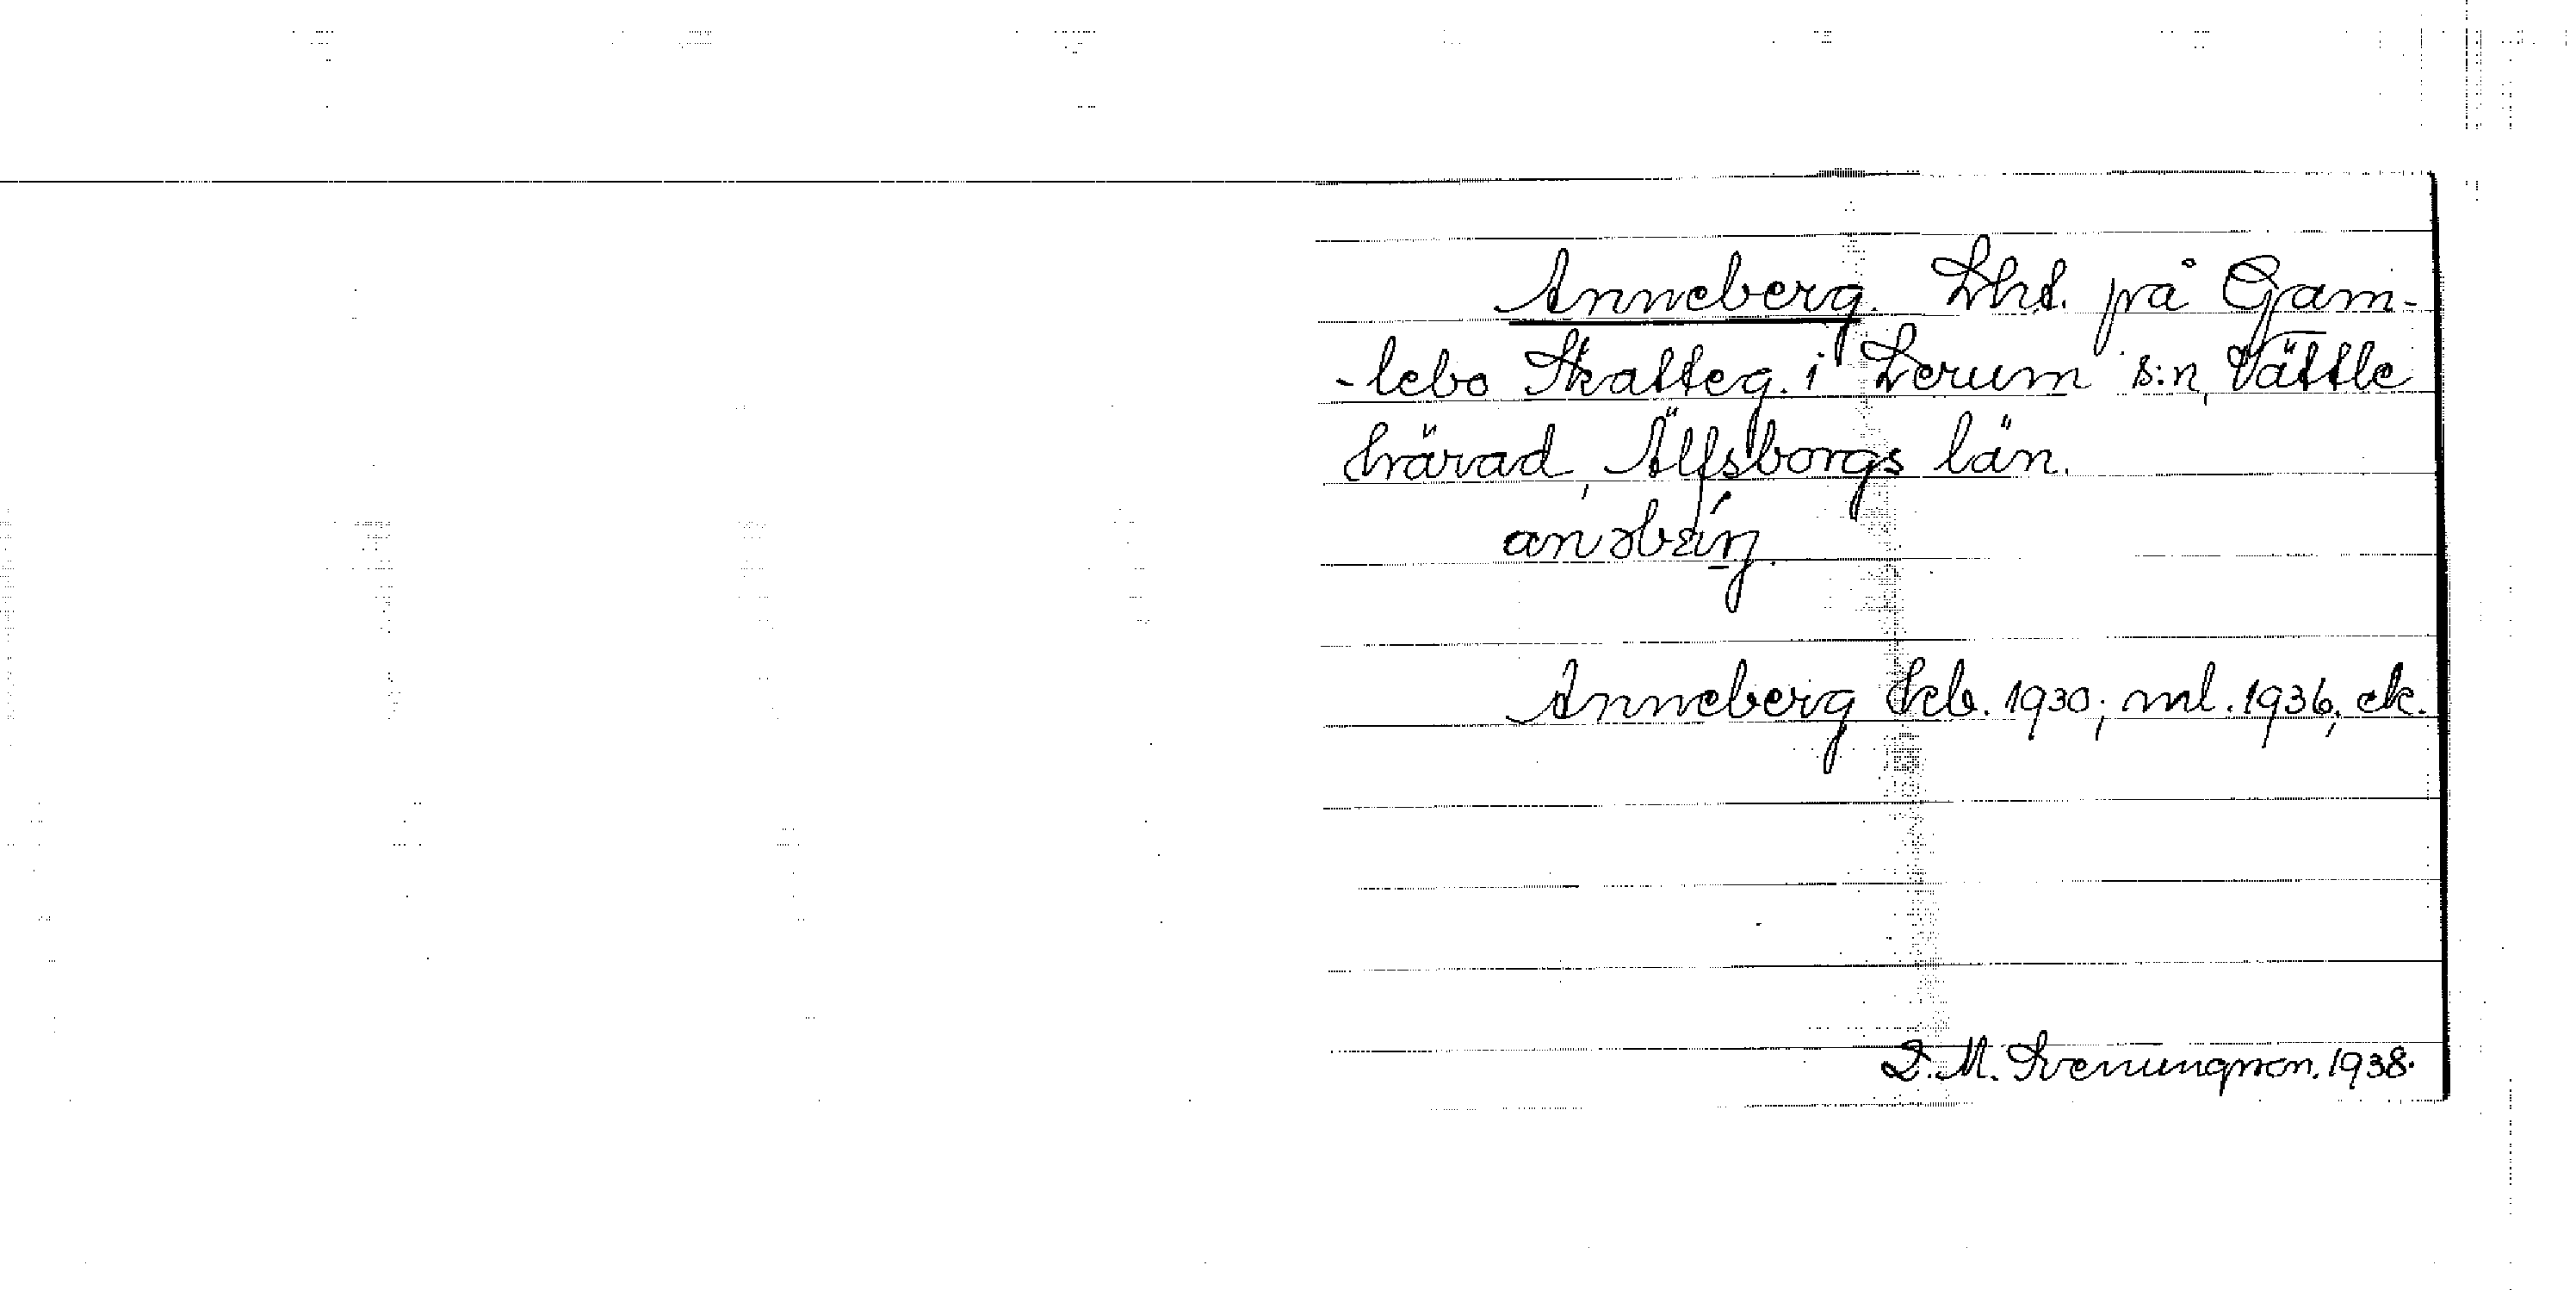 Anneberg. Lht. på Gam-
-lebo Skatteg. i Lerum s:n, Vättle
härad, Älfsborgs län.
Anneberg kb. 1930; ml. 1936, ek.
D. M. Svenungsson. 1938.